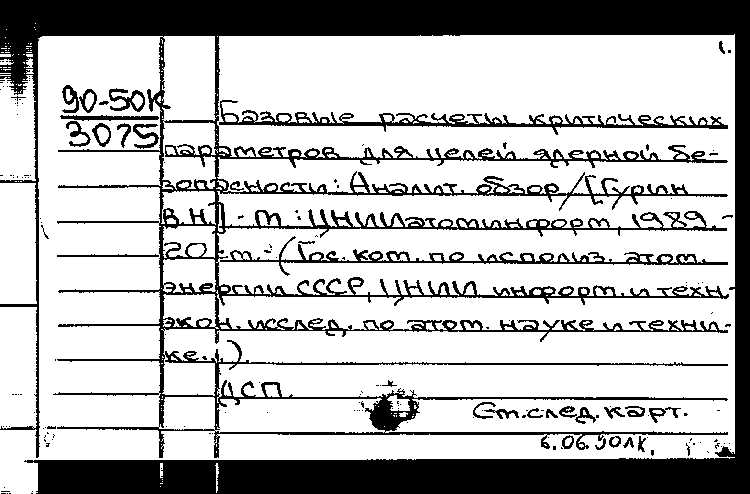 1.
90-50К
3075
Базовые расчеты критических
параметров для целей ядерной бе-
зопасности: Аналит. обзор / [Гурин
В.Н.] - М.: ЦНИИатоминформ, 1989. -
20 ст. - (Гос. ком. по использ. атом.
энергии СССР, ЦНИИ информ. и техн.-
экон. исслед. по атом. науке и техни-
ке...).
ДСП.
Ст. след. карт.
6.06.90 ЛК.